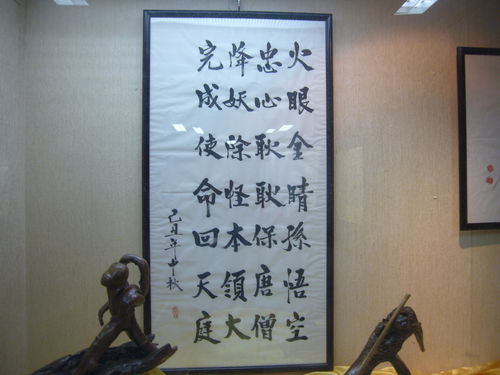 火眼金睛孫悟空
忠心耿耿保唐僧
降妖除怪本領大
完成使命回天庭
己丑年中秋